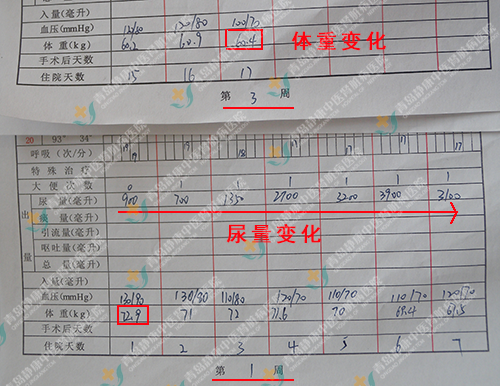 入量(毫升)
血压(mmHg) 120/80 120/80 100/70
体 重(kg) 60.2 60.9 60.4 体重变化
手术后天数
住院天数 15 16 17
第 3 周
20 93° 34°
呼吸(次/分) 19 19 18 17 17
特殊治疗
大便次数 0 1 1 1 1 1 1
尿 量(毫升) 900 700 1350 2700 3200 3900 3100
出 痰 量(毫升)
引流量(毫升)
尿量变化
量 呕吐量(毫升)
总 量(毫升)
入量(毫升)
血压(mmHg) 130/90 130/80 110/80 120/70 110/70 110/70 120/70
体 重(kg) 72.9 71 72 71.6 70 69.4 67.5
手术后天数
住院天数 1 2 3 4 5 6 7
第 1 周